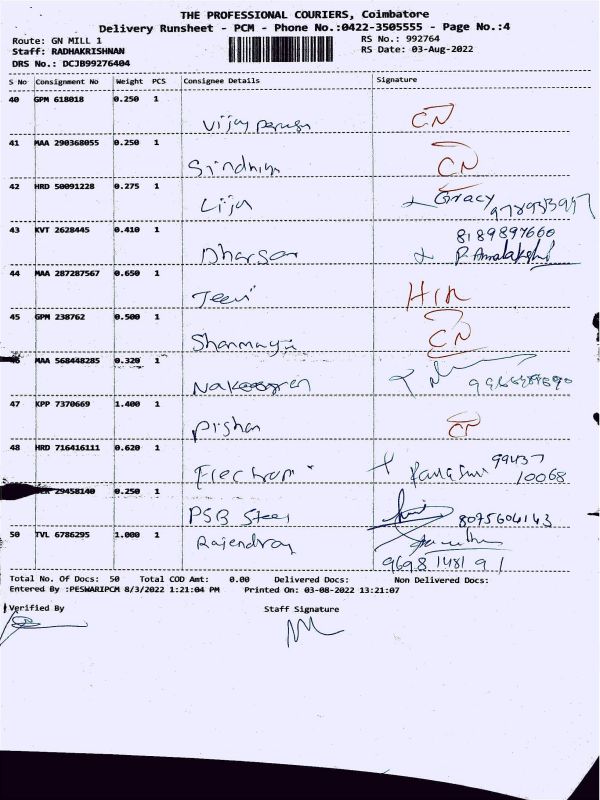 THE PROFESSIONAL COURIERS, Coimbatore
Delivery Runsheet - PCM - Phone No.:0422-3505555 - Page No.:4
Route: GN MILL 1 RS No.: 992764
Staff: RADHAKRISHNAN RS Date: 03-Aug-2022
DRS No.: DCJB99276404
S No Consignment No Weight PCS Consignee Details Signature
40 GPM 618018 0.250 1
Vijay CN
41 MAA 290368055 0.250 1
Sindhiya CN
42 HRD 50091228 0.275 1
Lija Gracy
43 KVT 2628445 0.410 1 8189897660
Dharsan P. Amalakshi
44 MAA 287287567 0.650 1
Jeevi
45 GPM 238762 0.500 1
CN
46 MAA 568448285 0.320 1
47 KPP 7370669 1.400 1
CN
48 HRD 716416111 0.620 1 99437
10068
29458140 0.250 1
PSB Steel 8075604143
50 TVL 6786295 1.000 1
Rajendran
9698 1481 91
Total No. Of Docs: 50 Total COD Amt: 0.00 Delivered Docs: Non Delivered Docs:
Entered By :PESWARIPCM 8/3/2022 1:21:04 PM Printed On: 03-08-2022 13:21:07
Verified By Staff Signature